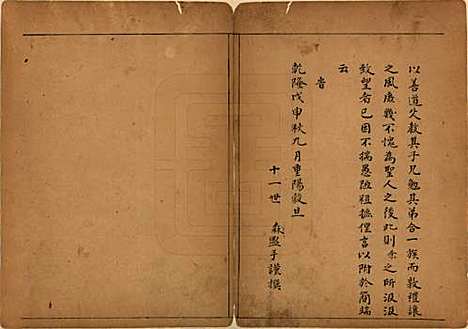 以善道父教其子兄勉其弟合一族而敦禮讓
之風庶幾不愧為聖人之後此則余之所汲汲
致望者已因不揣愚陋粗摭俚言以附於簡端
云
旹
乾隆戊申秋九月重陽穀旦
十一世 森盟子謹撰